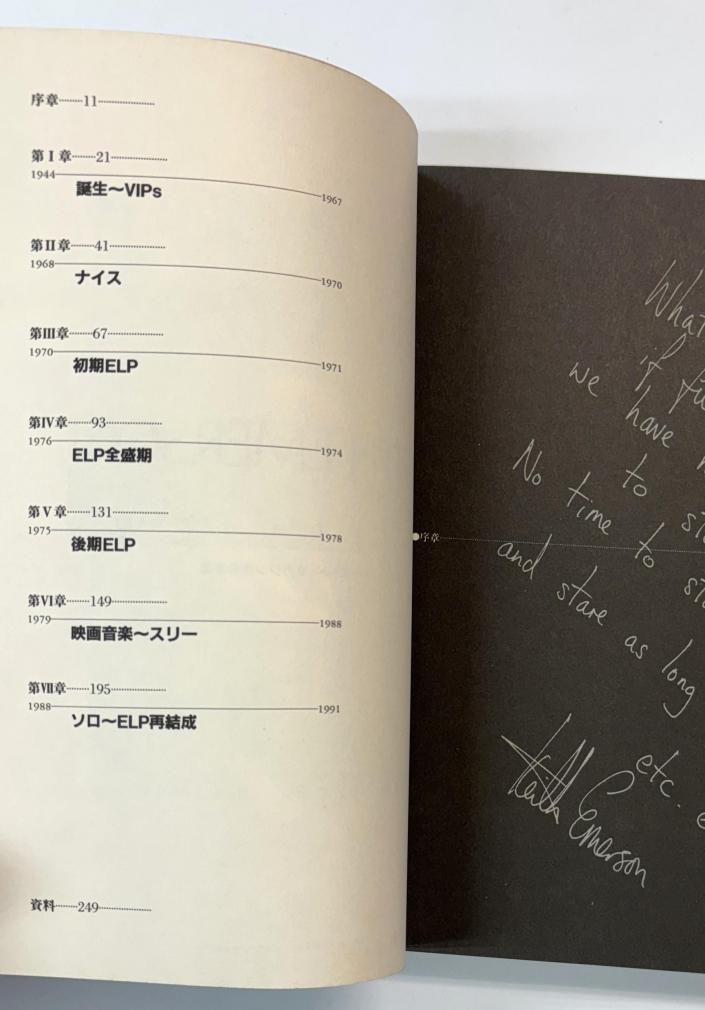 序章………11………………
第Ⅰ章………21………………
1944 1967
誕生〜VIPs
第Ⅱ章………41………………
1968 1970
ナイス
第Ⅲ章………67………………
1970 1971
初期ELP
第Ⅳ章………93………………
1976 1974
ELP全盛期
第Ⅴ章………131………………
1975 1978
後期ELP
第Ⅵ章………149………………
1979 1988
映画音楽〜スリー
第Ⅶ章………195………………
1988 1991
ソロ〜ELP再結成
資料………249………………
What
if
we have
to
No time to
●序章
and stare as long
etc.
Keith Emerson